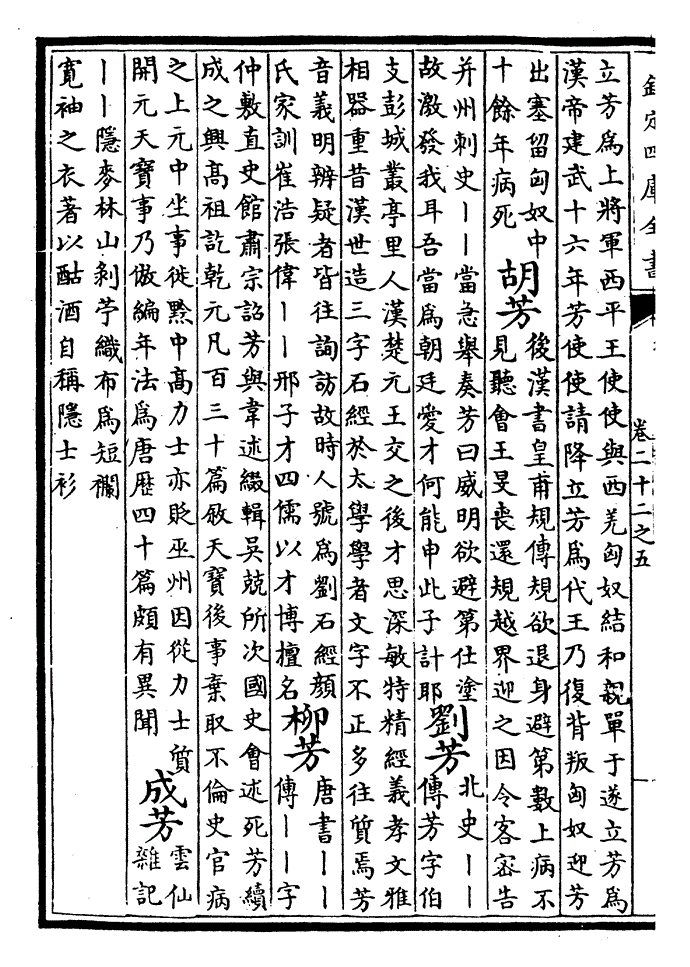 欽定四庫全書
卷二十二之五
立芳爲上將軍西平王使使與西羌匈奴結和親單于遂立芳爲
漢帝建武十六年芳使使請降立芳爲代王乃復背叛匈奴迎芳
出塞留匈奴中
十餘年病死
胡芳
後漢書皇甫規傳規欲退身避第數上病不
見聽會王旻喪還規越界迎之因令客密告
并州刺史丨丨當急舉奏芳曰威明欲避第仕塗
故激發我耳吾當爲朝廷愛才何能申此子計耶
劉芳
北史丨丨
傳芳字伯
支彭城叢亭里人漢楚元王交之後才思深敏特精經義孝文雅
相器重昔漢世造三字石經於太學學者文字不正多往質焉芳
音義明辨疑者皆往詢訪故時人號爲劉石經顔
氏家訓崔浩張偉丨丨邢子才四儒以才博擅名
柳芳
唐書丨丨
傳丨丨字
仲敷直史館肅宗詔芳與韋述綴輯吳兢所次國史會述死芳續
成之興高祖訖乾元凡百三十篇敘天寶後事棄取不倫史官病
之上元中坐事徙黔中高力士亦貶巫州因從力士質
開元天寶事乃倣編年法爲唐歷四十篇頗有異聞
成芳
雲仙
雜記
丨丨隱麥林山剝苧織布爲短襴
寬袖之衣著以酤酒自稱隱士衫